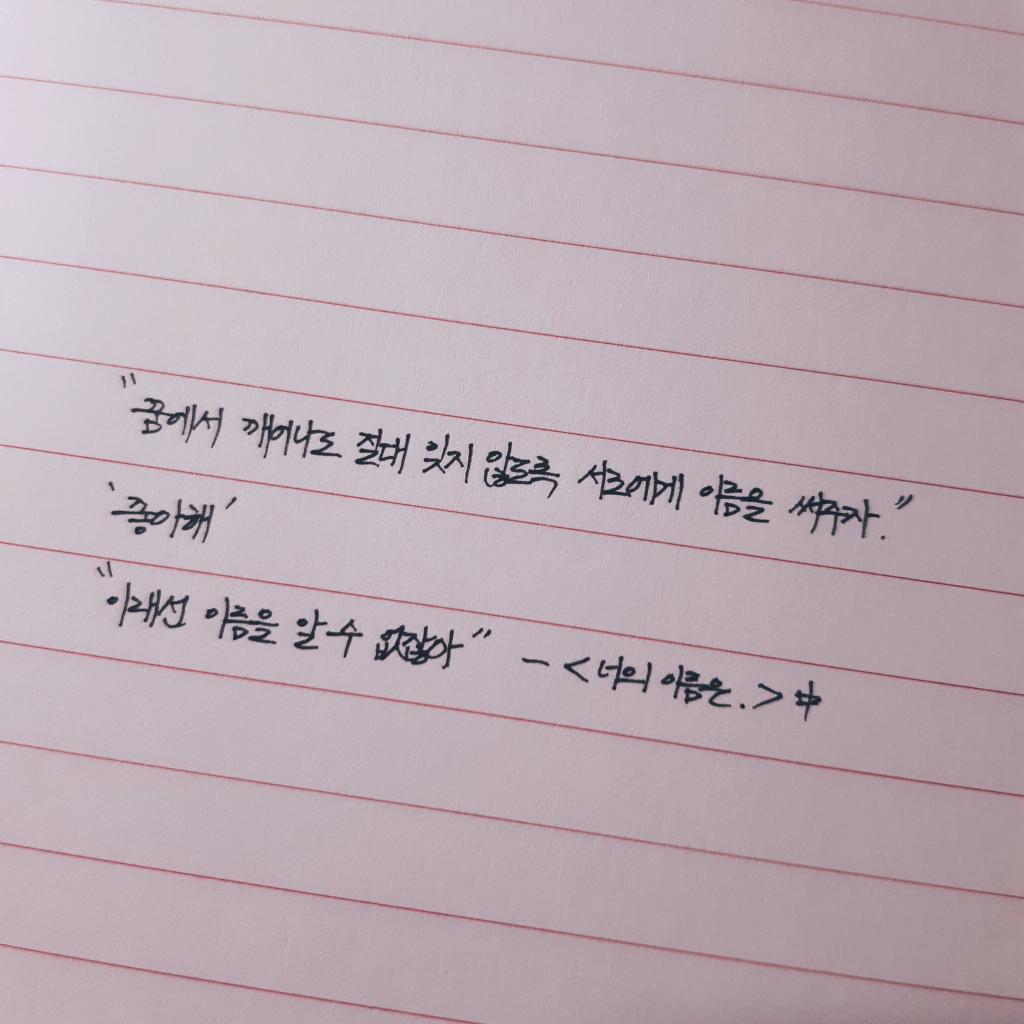 "꿈에서 깨어나도 절대 잊지 않도록 서로에게 이름을 써주자."
'좋아해'
"이래선 이름을 알 수 없잖아" - <너의 이름은.> 中